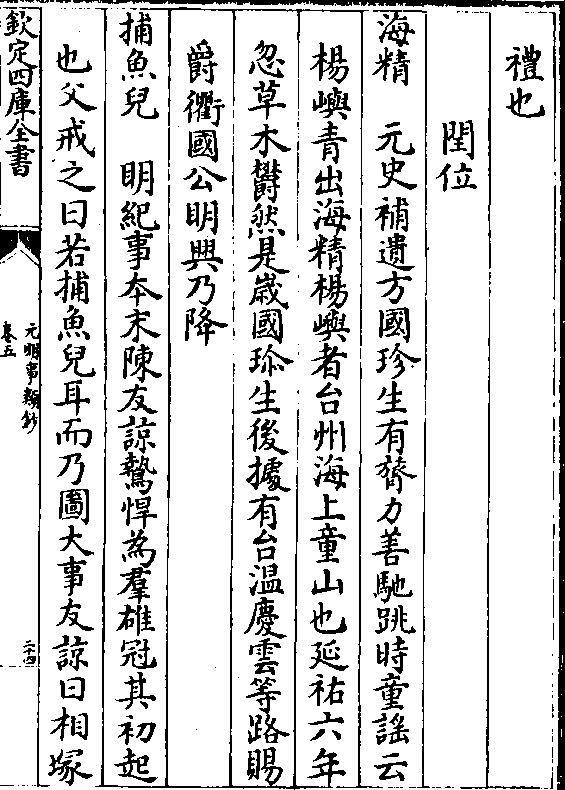 禮也
閏位
海精　元史補遺方國珍生有膂力善馳跳時童謡云
楊嶼青出海精楊嶼者台州海上童山也延祐六年
忽草木欝然是嵗國珎生後據有台温慶雲等路賜
爵衢國公明興乃降
捕魚兒　明紀事本末陳友諒驁悍為羣雄冠其初起
也父戒之曰若捕魚兒耳而乃圖大事友諒曰相塚
欽定四庫全書
元明事類鈔
卷五
二十四